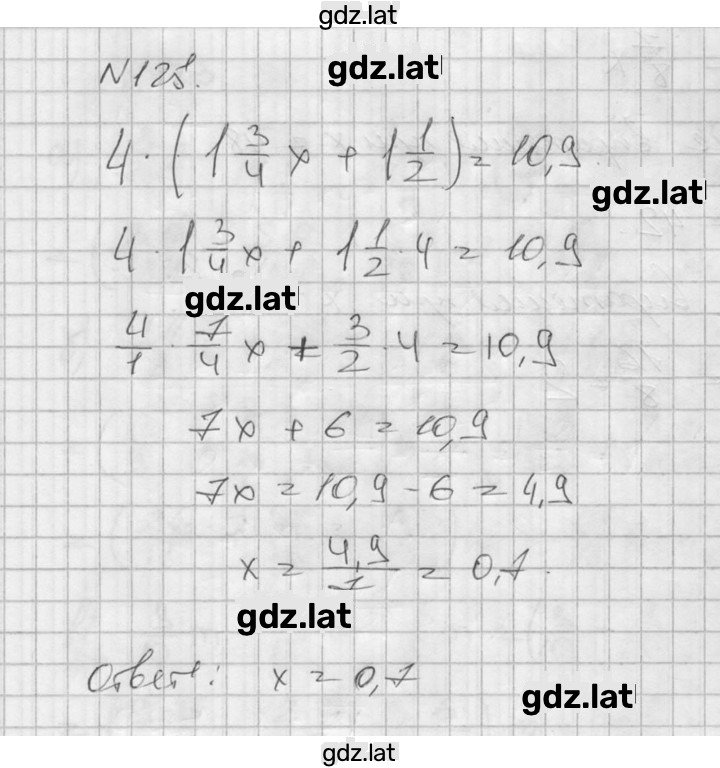 gdz.lat
N128.
gdz.lat
4 · (1 3/4 x + 1 1/2) = 10,9
gdz.lat
4 · 1 3/4 x + 1 1/2 · 4 = 10,9
gdz.lat
4/1 · 7/4 x + 3/2 · 4 = 10,9
7x + 6 = 10,9
7x = 10,9 - 6 = 4,9
x = 4,9/7 = 0,7.
gdz.lat
Ответ: x = 0,7
gdz.lat
gdz.lat